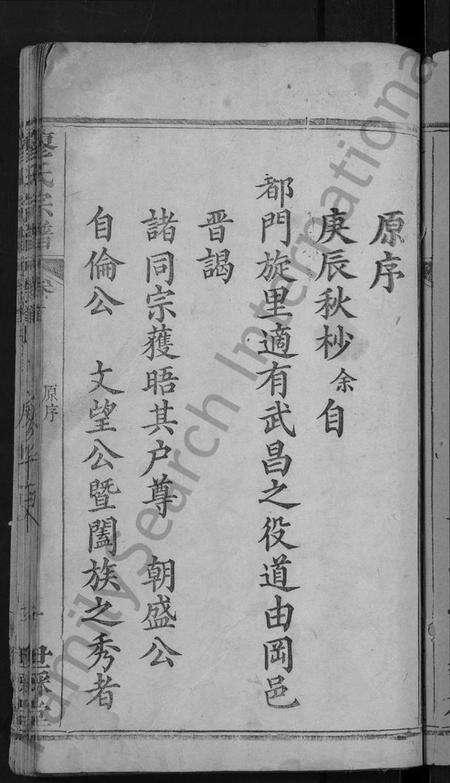 原序
庚辰秋杪余自
都門旋里適有武昌之役道由岡邑
晋謁
諸同宗獲晤其户尊 朝盛公
自倫公 文望公暨闔族之秀者
廖氏宗譜
原序
世綵堂
FamilySearch International